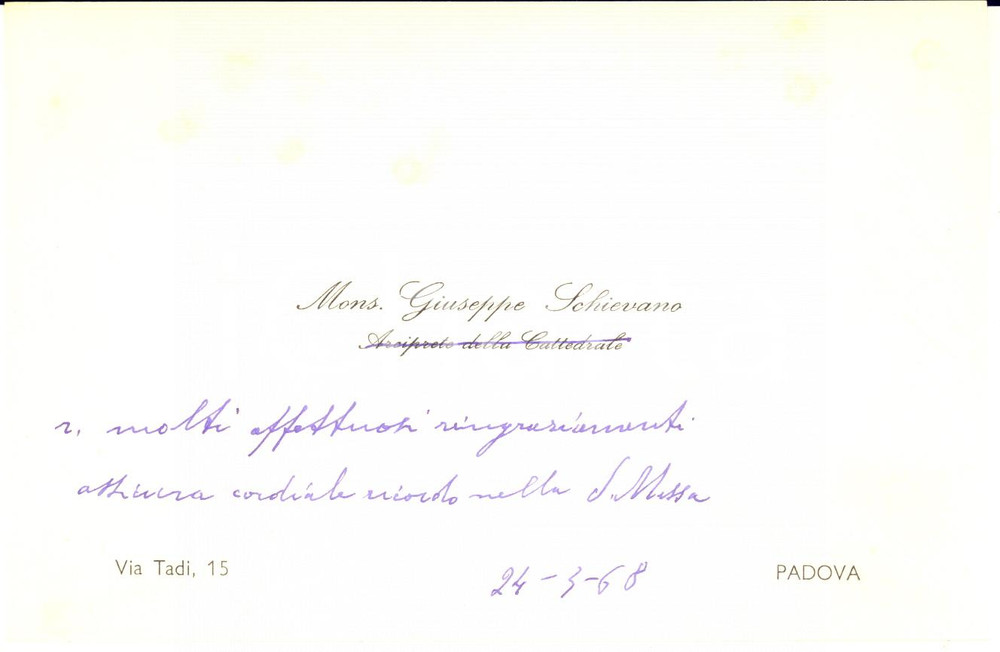 Mons. Giuseppe Schievano
Arciprete della Cattedrale
r. molti affettuosi ringraziamenti
assicura cordiale ricordo nella S. Messa
Via Tadi, 15
24-3-68
PADOVA